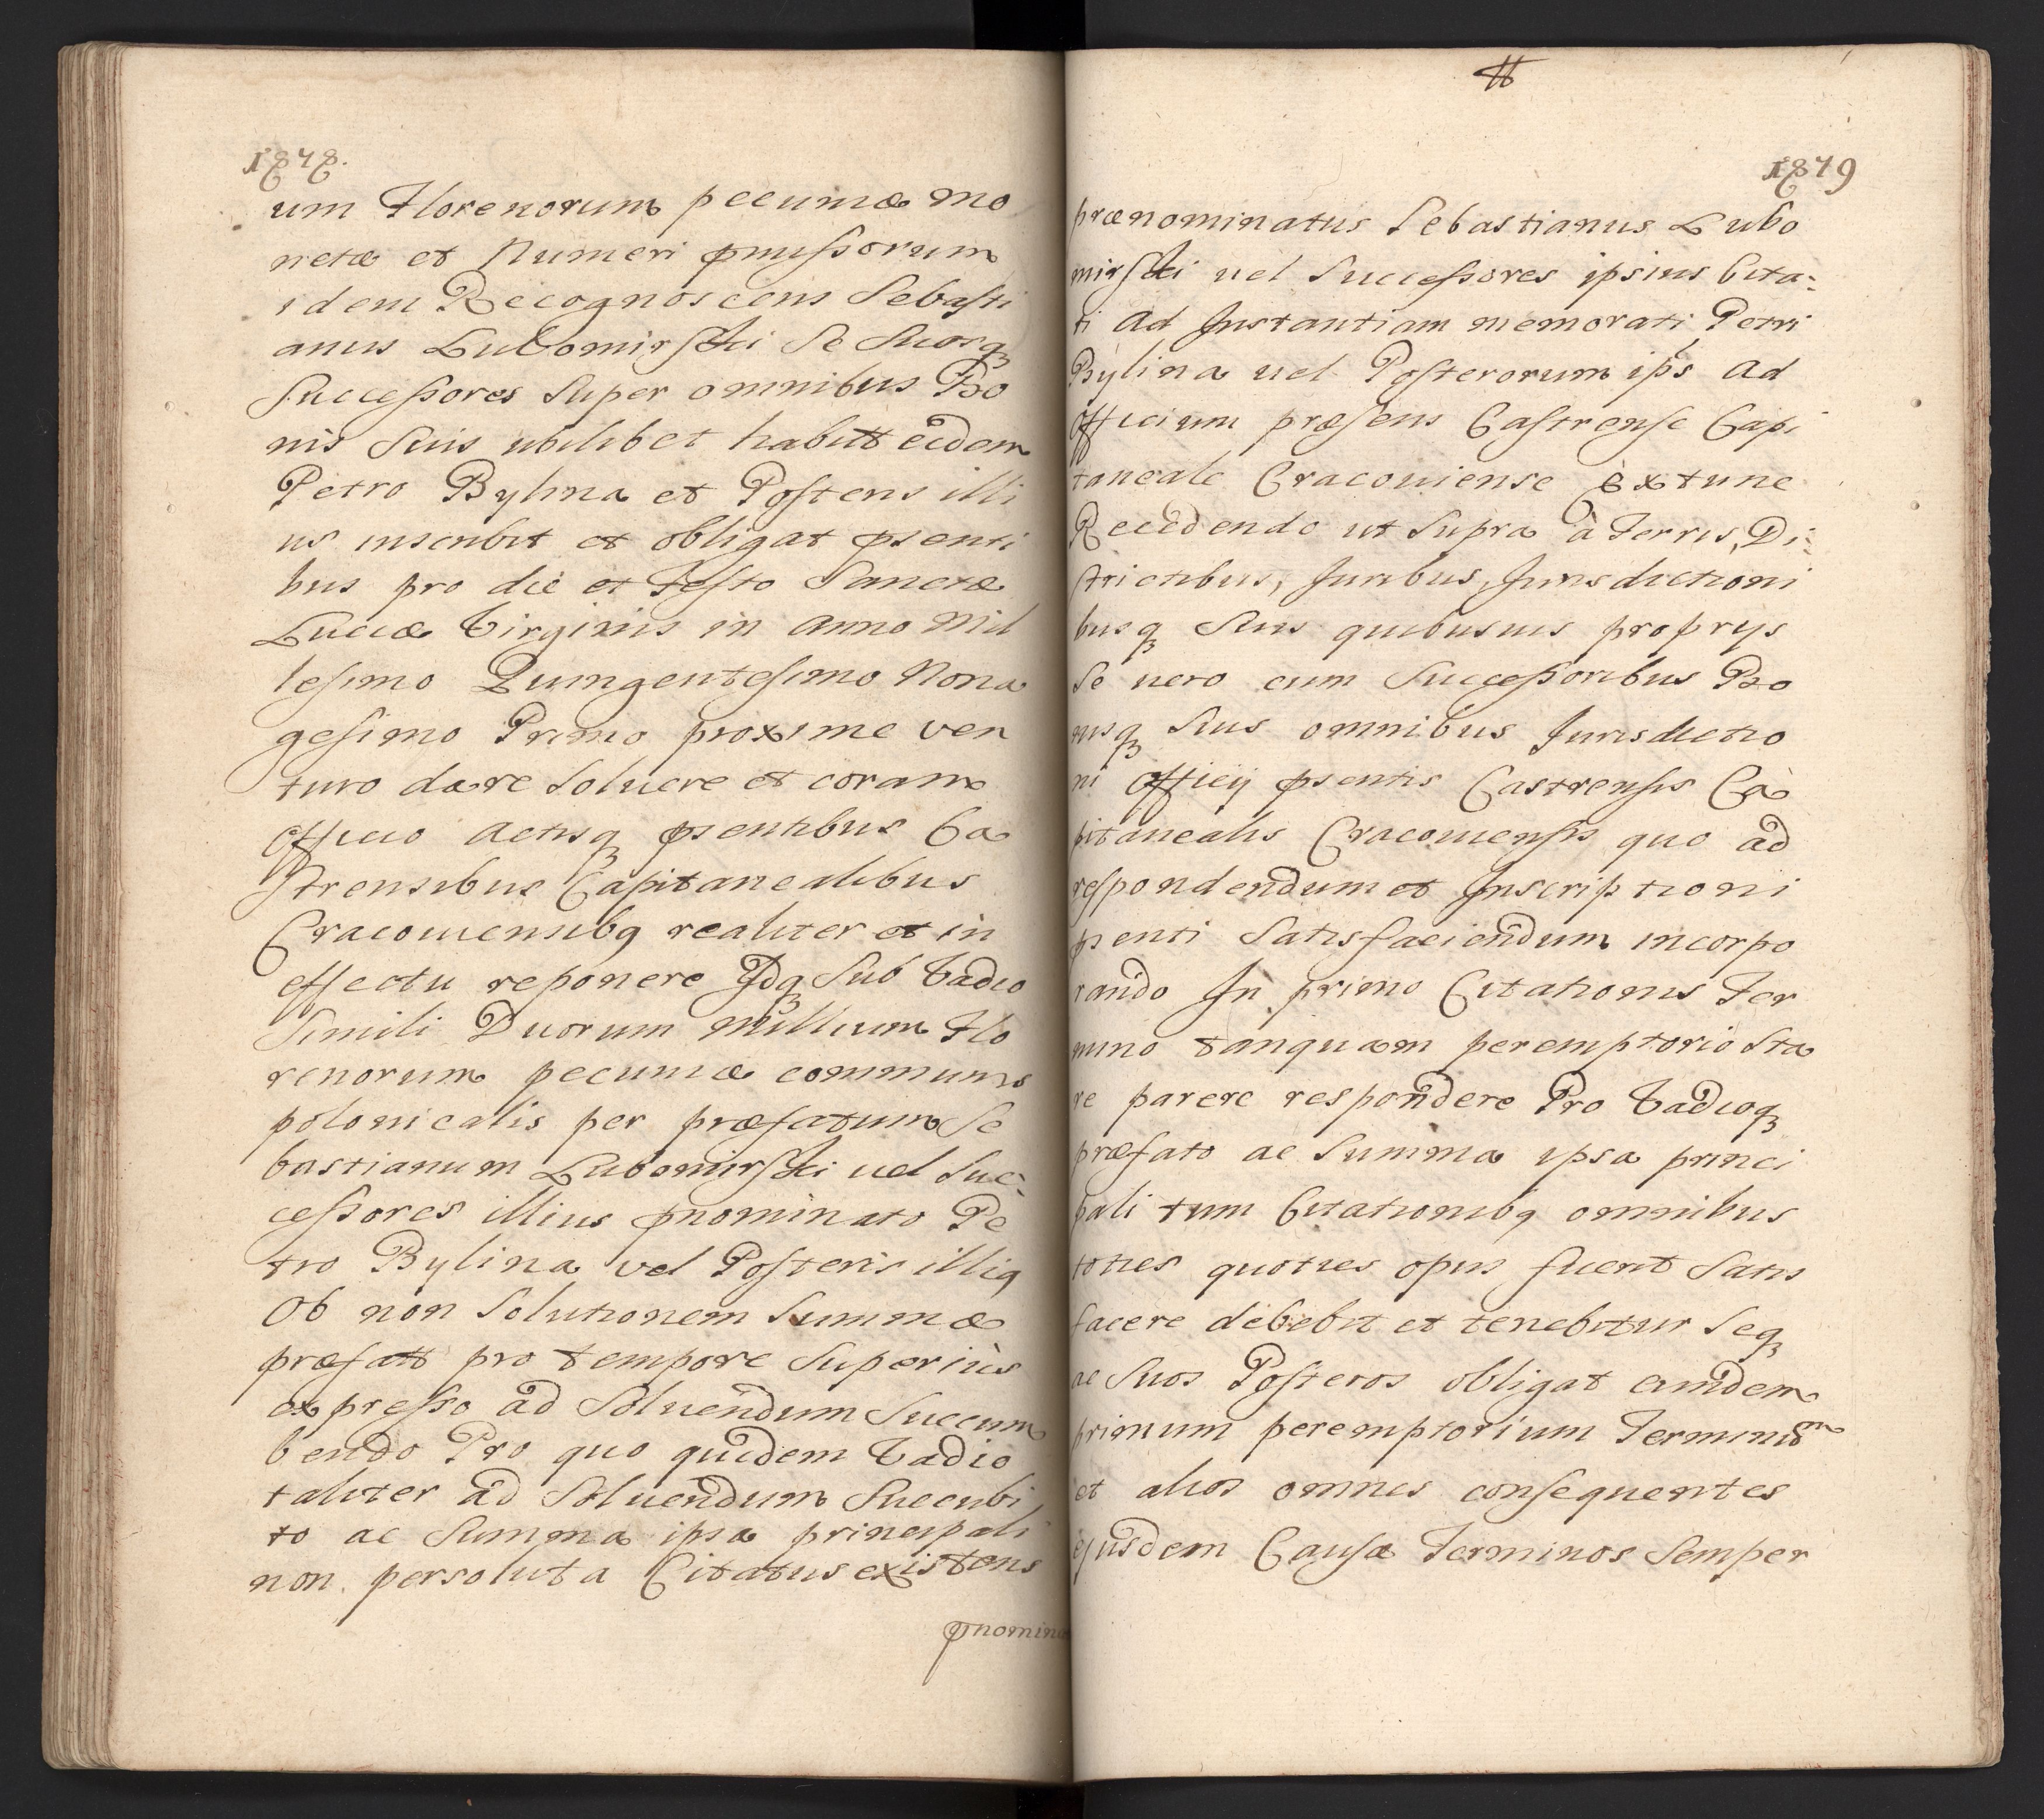 1878.
um Florenorum pecuniæ mo
netæ et Numeri pmissorum
idem Recognoscens Sebasti
anus Lubomirski Se Suosq
Successores Super omnibus Bo
nis Suis ubilibet habitt eidem
Petro Bylina et Posteris illi
us inscribit et obligat psenti
bus pro die et Festo Sanctæ
Luciæ Virginis in Anno Mil
lesimo Quingentesimo Nona
gesimo Primo proxime ven
turo dare Soluere et coram
Officio Actisq psentibus Ca
strensibus Capitanealibus
Cracouiensibq realiter et in
effectu reponere Idq Sub Vadio
Simili Duorum Millium Flo
renorum pecuniæ communis
polonicalis per præfatum Se
bastianum Lubomirski uel Suc-
cessores illius pnominato Pe
tro Bylina vel Posteris illiq
Ob non Solutionem Summæ
præfatt pro tempore Superius
expresso ad Soluendum Succum
bendo Pro quo quidem Vadio
taliter ad Soluendum Succubi
to ac Summa ipsa principali
non persoluta Citatus existens
pnomina
#
1879
prænominatus Sebastianus Lubo
mirski uel Successores ipsius Cita-
ti Ad Instantiam memorati Petri
Bylina uel Posterorum ips Ad
Officium præsens Castrense Capi
taneale Cracouiense Extunc
Recedendo ut Supra à Terris, Di-
strictibus, Juribus, Jurisdictioni
busq Suis quibusuis proprys
Se uero cum Successoribus Bo
nisq Suis omnibus Jurisdictio
ni Officij psentis Castrensis Ca
pitanealis Cracouiensis quo ad
respondendum et Inscriptioni
psenti Satisfaciendum incorpo
rando In primo Citationis Ter
mino tanquam peremptorio Sta
re parere respondere Pro Vadioq
præfato ac Summa ipsa princi
pali tum Citationibq omnibus
toties quoties opus fuerit Satis
facere debebit et tenebitur Seq
ac Suos Posteros obligat eundem
primum peremptorium Terminum
et alios omnes consequentes
ejusdem Causæ Terminos Semper